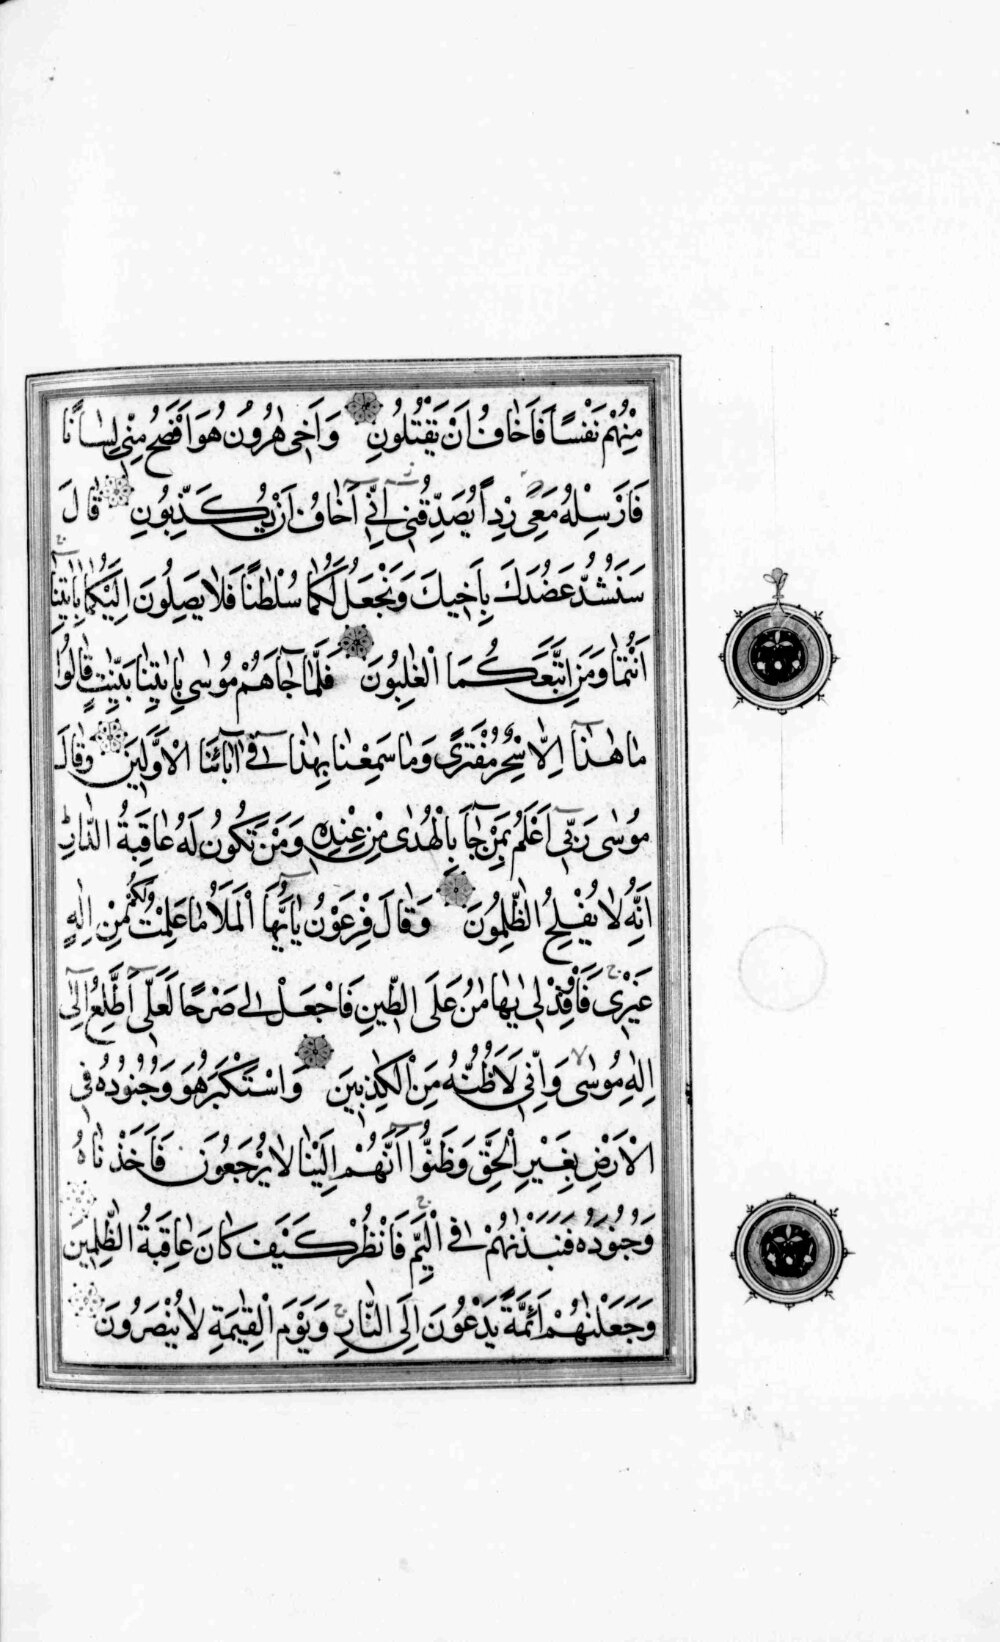 مِنْهُمْ نَفْسًا فَاَخَافُ اَنْ يَقْتُلُونِ وَاَخِى هٰرُونُ هُوَ اَفْصَحُ مِنِّى لِسَانًا
فَاَرْسِلْهُ مَعِىَ رِدْاً يُصَدِّقُنِى اِنِّى اَخَافُ اَنْ يُكَذِّبُونِ قَالَ
سَنَشُدُّ عَضُدَكَ بِاَخِيكَ وَنَجْعَلُ لَكُمَا سُلْطٰنًا فَلَا يَصِلُونَ اِلَيْكُمَا بِاٰيٰتِنَا
اَنْتُمَا وَمَنِ اتَّبَعَكُمَا الْغٰلِبُونَ فَلَمَّا جَاۤءَهُمْ مُوسٰى بِاٰيٰتِنَا بَيِّنٰتٍ قَالُوا
مَا هٰذَا اِلَّا سِحْرٌ مُفْتَرًى وَمَا سَمِعْنَا بِهٰذَا فِى اٰبَاۤئِنَا الْاَوَّلِينَ وَقَالَ
مُوسٰى رَبِّى اَعْلَمُ بِمَنْ جَاۤءَ بِالْهُدٰى مِنْ عِنْدِهِ وَمَنْ تَكُونُ لَهُ عَاقِبَةُ الدَّارِ
اِنَّهُ لَا يُفْلِحُ الظّٰلِمُونَ وَقَالَ فِرْعَوْنُ يَا اَيُّهَا الْمَلَاُ مَا عَلِمْتُ لَكُمْ مِنْ اِلٰهٍ
غَيْرِى فَاَوْقِدْ لِى يَا هَامٰنُ عَلَى الطِّينِ فَاجْعَلْ لِى صَرْحًا لَعَلِّى اَطَّلِعُ اِلٰى
اِلٰهِ مُوسٰى وَاِنِّى لَاَظُنُّهُ مِنَ الْكٰذِبِينَ وَاسْتَكْبَرَ هُوَ وَجُنُودُهُ فِى
الْاَرْضِ بِغَيْرِ الْحَقِّ وَظَنُّوا اَنَّهُمْ اِلَيْنَا لَا يُرْجَعُونَ فَاَخَذْنَاهُ
وَجُنُودَهُ فَنَبَذْنٰهُمْ فِى الْيَمِّ فَانْظُرْ كَيْفَ كَانَ عَاقِبَةُ الظّٰلِمِينَ
وَجَعَلْنٰهُمْ اَئِمَّةً يَدْعُونَ اِلَى النَّارِ وَيَوْمَ الْقِيٰمَةِ لَا يُنْصَرُونَ